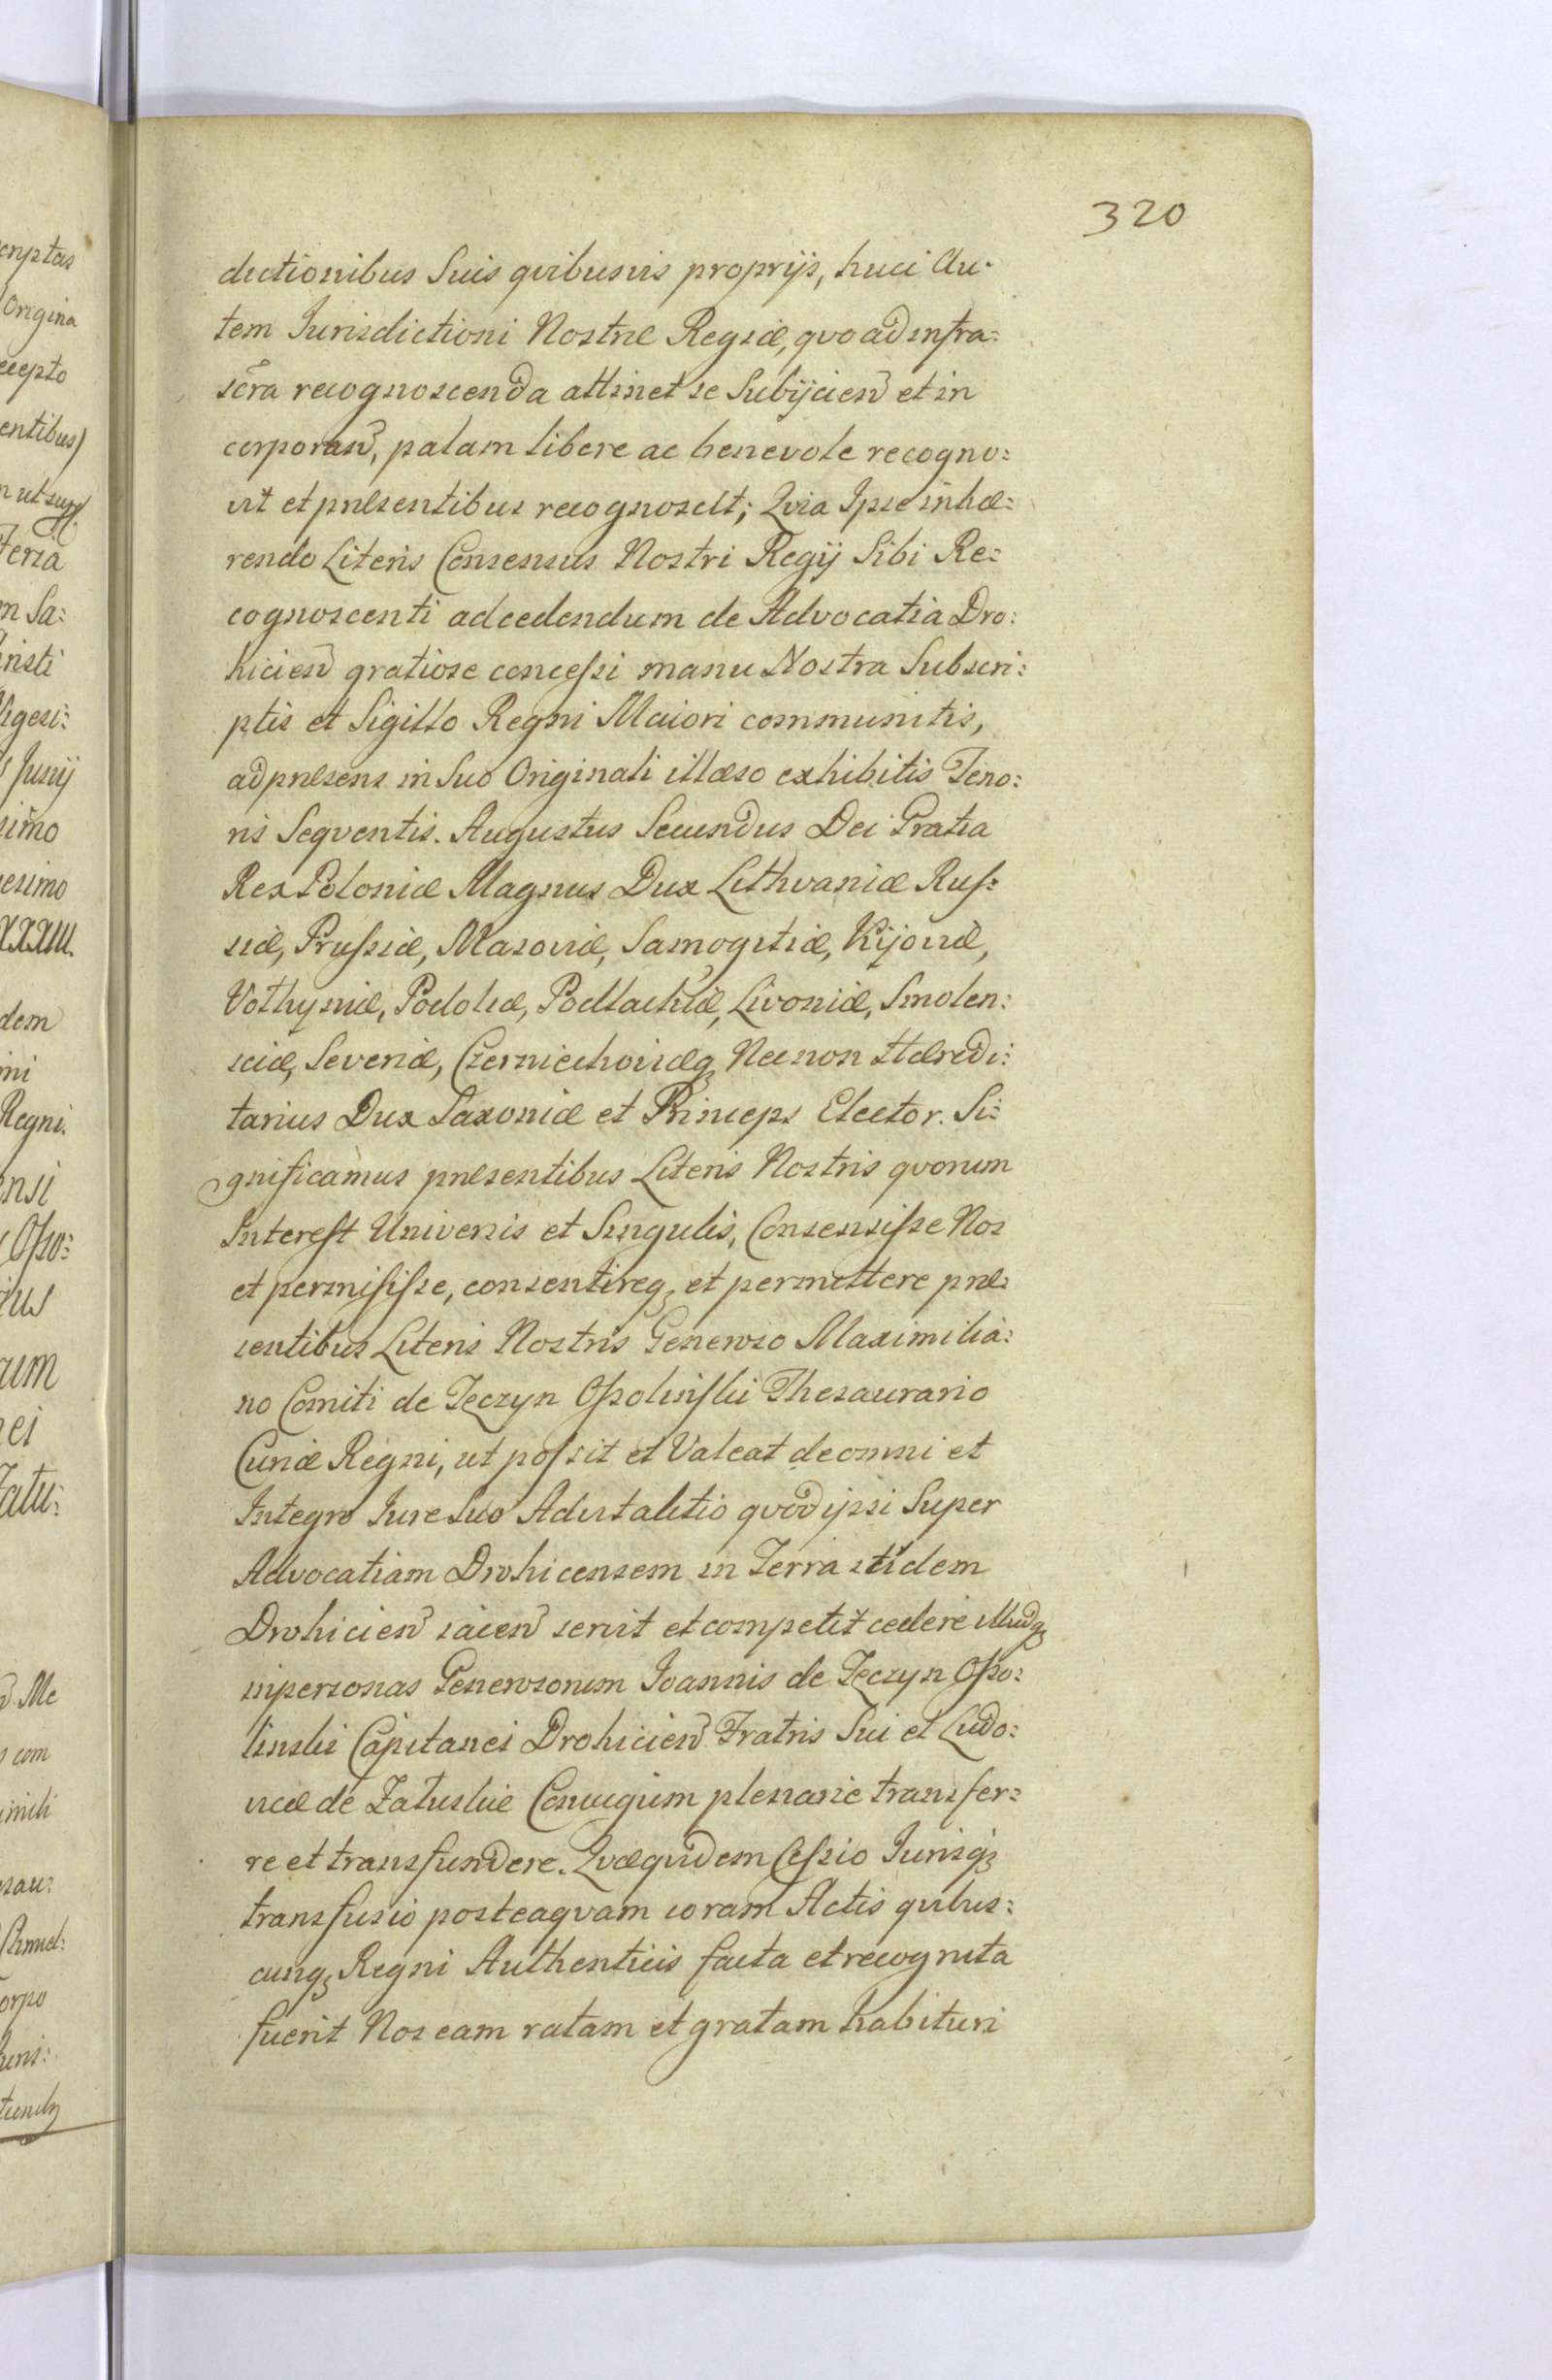 320
dictionibus Suis qvibusvis proprijs, huic Au-
tem Jurisdictioni Nostræ Regiæ, qvo ad infra=
scra recognoscenda attinet se Subijcien et in
corporan, palam libere ac benevole recogno=
vit et præsentibus recognoscit; Qvia Ipse inhæ=
rendo Literis Consensus Nostri Regij Sibi Re=
cognoscenti ad cedendum de Advocatia Dro=
hicien gratiose concessi manu Nostra Subscri=
ptis et Sigillo Regni Maiori communitis,
ad præsens in Suo Originali illæso exhibitis Teno=
ris Seqventis. Augustus Secundus Dei Gratia
Rex Poloniæ Magnus Dux Lithvaniæ Rus=
siæ, Prussiæ, Masoviæ, Samogitiæ, Kijoviæ,
Volhyniæ, Podoliæ, Podlachiæ, Livoniæ, Smolen=
sciæ, Severiæ, Czerniechoviæq Necnon Hæredi=
tarius Dux Saxoniæ et Princeps Elector. Si=
gnificamus præsentibus Literis Nostris qvorum
Interest Universis et Singulis, Consensisse Nos
et permisisse, consentireq et permittere præ=
sentibus Literis Nostris Generoso Maximilia=
no Comiti de Teczyn Ossolinski Thesaurario
Curiæ Regni, ut possit et Valeat de omni et
Integro Iure Suo Advitalitio qvod ipsi Super
Advocatiam Drohicensem in Terra itidem
Drohicien iacien servit et competit cedere Illudq
in personas Generosorum Joannis de Teczyn Osso=
linski Capitanei Drohicien Fratris Sui et Ludo=
vicæ de Zaluskie Coniugum plenarie transfer=
re et transfundere. Qvæ qvidem Cessio Jurisq
transfusio posteaqvam coram Actis qvibus=
cunq Regni Authenticis facta et recognita
fuerit Nos eam ratam et gratam habituri